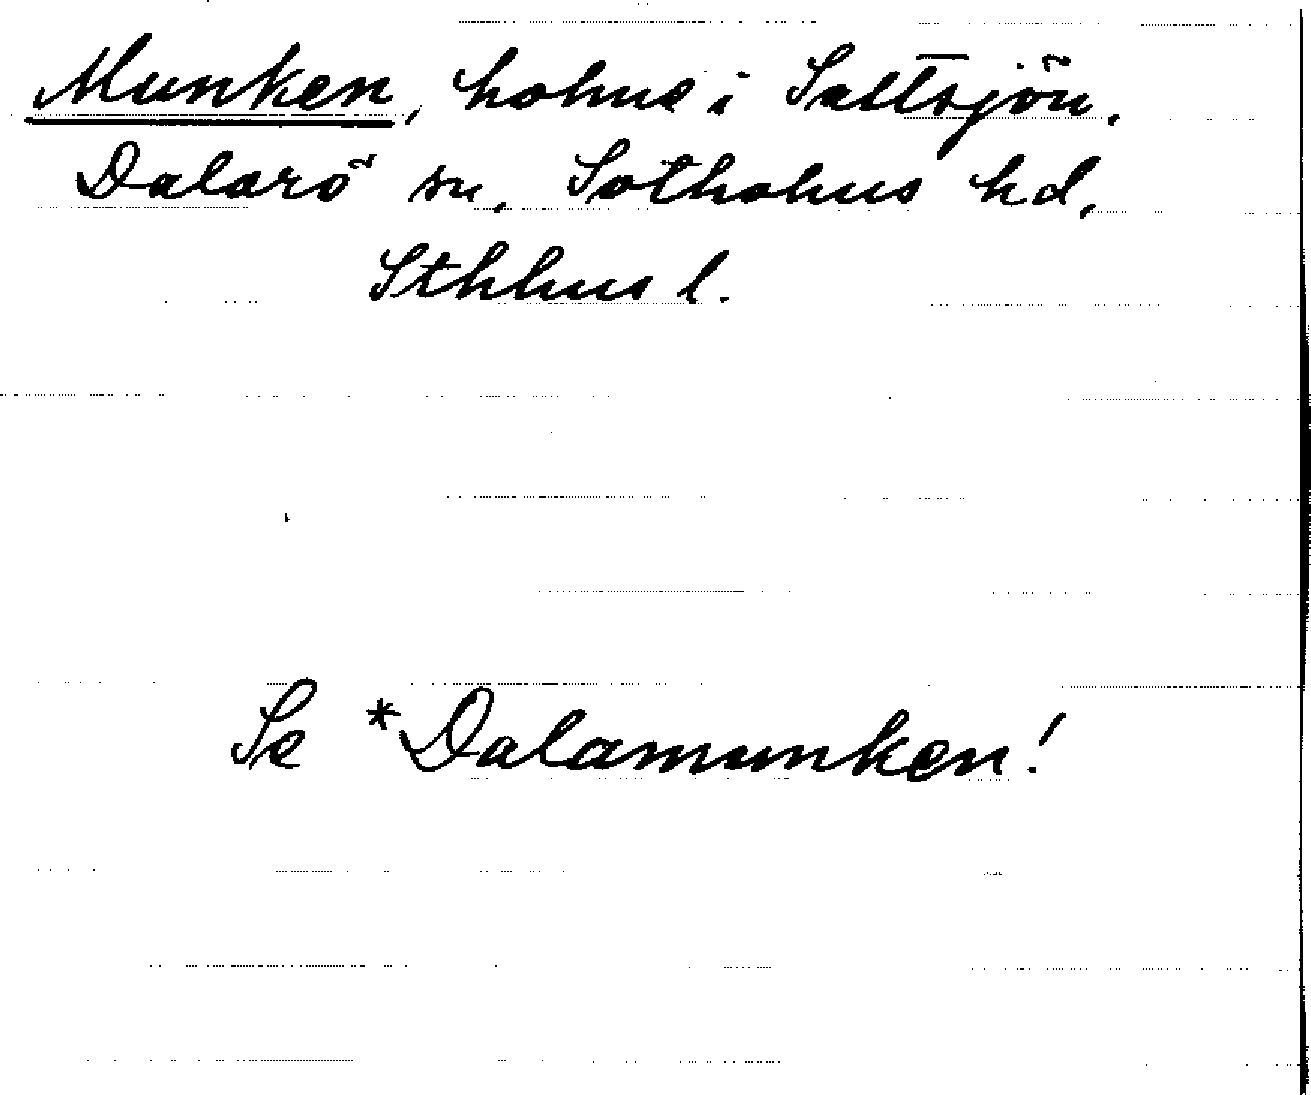 Munken, holme i Saltsjön,
Dalarö sn, Sotholms hd,
Sthlms l.
Se *Dalamunken!